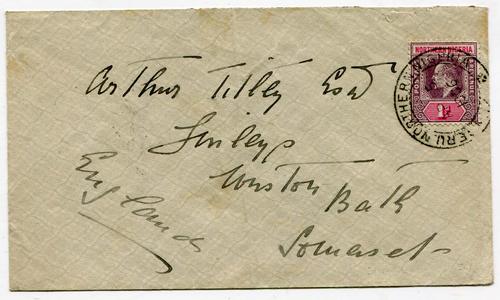 Arthur Tilley Esq
Winston Bath
Somerset
England
NORTHERN NIGERIA
POSTAGE & REVENUE
1d
NORTHERN NIGERIA